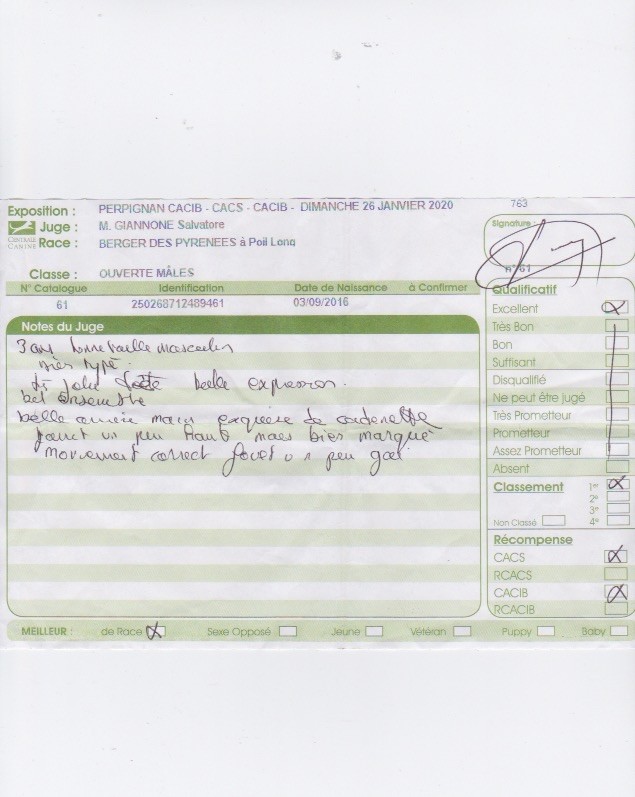 Exposition : PERPIGNAN CACIB - CACS - CACIB - DIMANCHE 26 JANVIER 2020 763
Juge : M. GIANNONE Salvatore
CENTRALE CANINE
Race : BERGER DES PYRENEES à Poil Long
Signature :
n°61
Classe : OUVERTE MÂLES
N° Catalogue Identification Date de Naissance à Confirmer
61 250268712489461 03/09/2016
Notes du Juge
3 ans bonne taille masculin
très typé.
jolie tête belle expression.
bel ensemble
belle arrière main
jarret un peu haut mais bien marqué
Mouvement correct fouet un peu gai
Qualificatif
Excellent X
Très Bon
Bon
Suffisant
Disqualifié
Ne peut être jugé
Très Prometteur
Prometteur
Assez Prometteur
Absent
Classement 1er X
2e
3e
Non Classé 4e
Récompense
CACS X
RCACS
CACIB X
RCACIB
MEILLEUR : de Race X Sexe Opposé Jeune Vétéran Puppy Baby